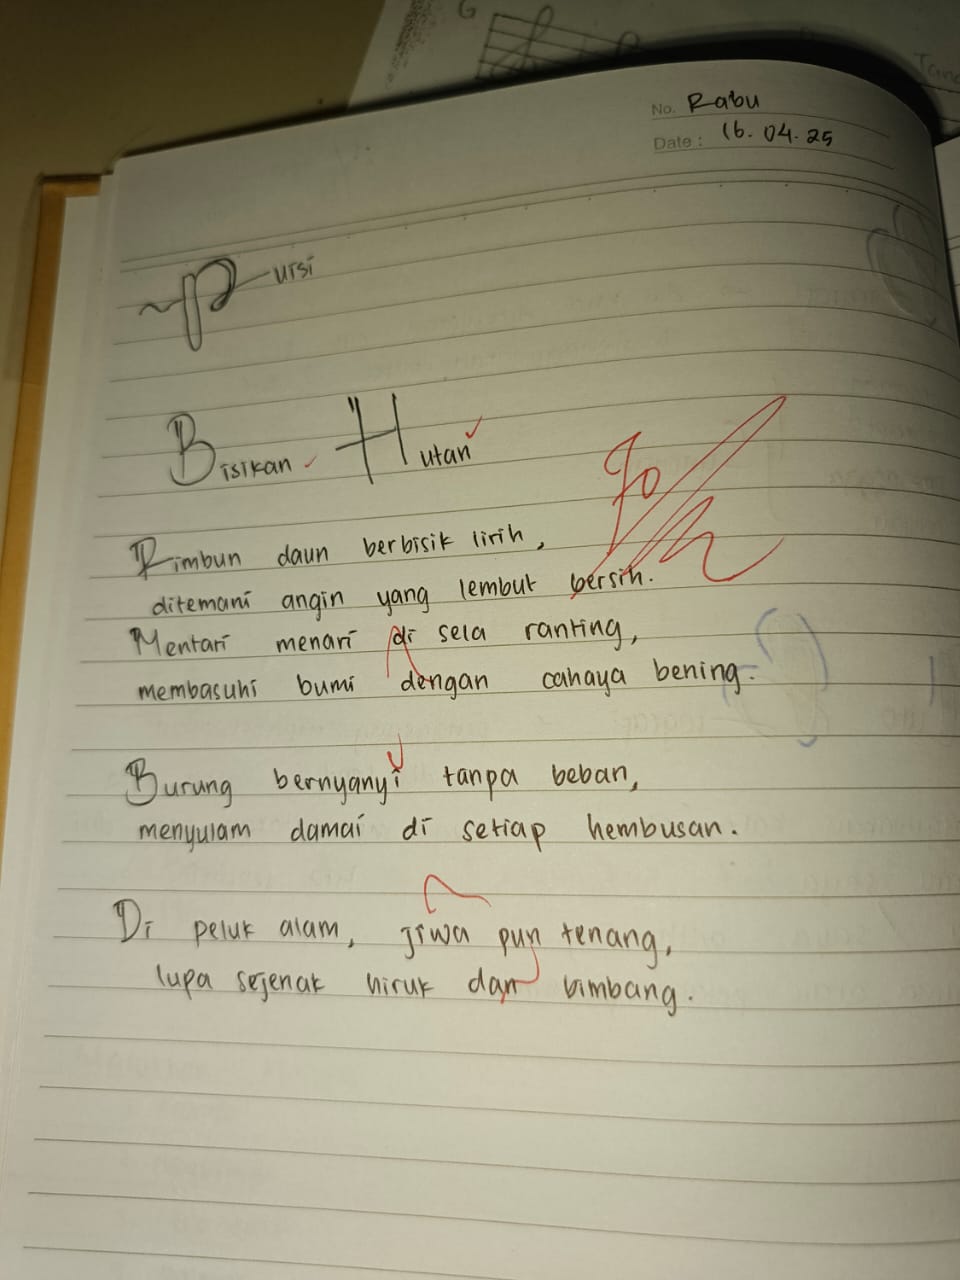 G
Tang
No. Rabu
Date : 16. 04. 25
Puisi
Bisikan Hutan
90
Rimbun daun berbisik lirih,
ditemani angin yang lembut bersih.
Mentari menari di sela ranting,
membasuhi bumi dengan cahaya bening.
Burung bernyanyi tanpa beban,
menyulam damai di setiap hembusan.
Di peluk alam, jiwa pun tenang,
lupa sejenak hiruk dan bimbang.